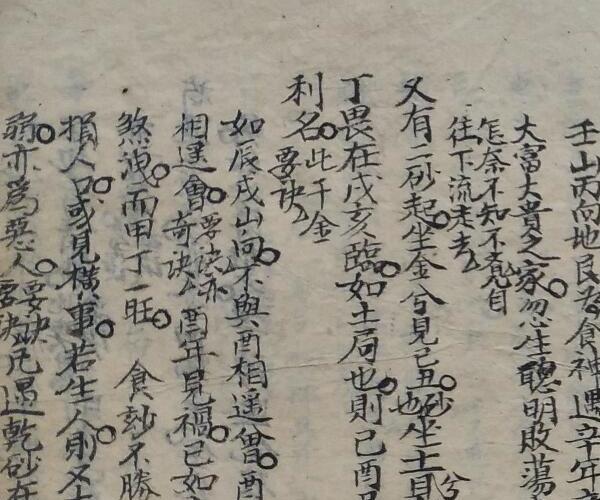 壬山丙向地艮為食神遇辛年
大富大貴之家忽生聰明敗蕩
怎奈不知不覺自
往下流走去
又有二砂起坐金兮見己丑砂也坐土見
丁畏在戊亥臨如土局也則己酉
利名此千金
要訣
如辰戌山向不與酉相遥會酉
相遥會要訣亦
奇訣酉年見禍已如
煞洩而甲丁一旺 食。不勝
損人口或見橫事若生人則又
弱亦為惡人要訣凡遇乾砂在